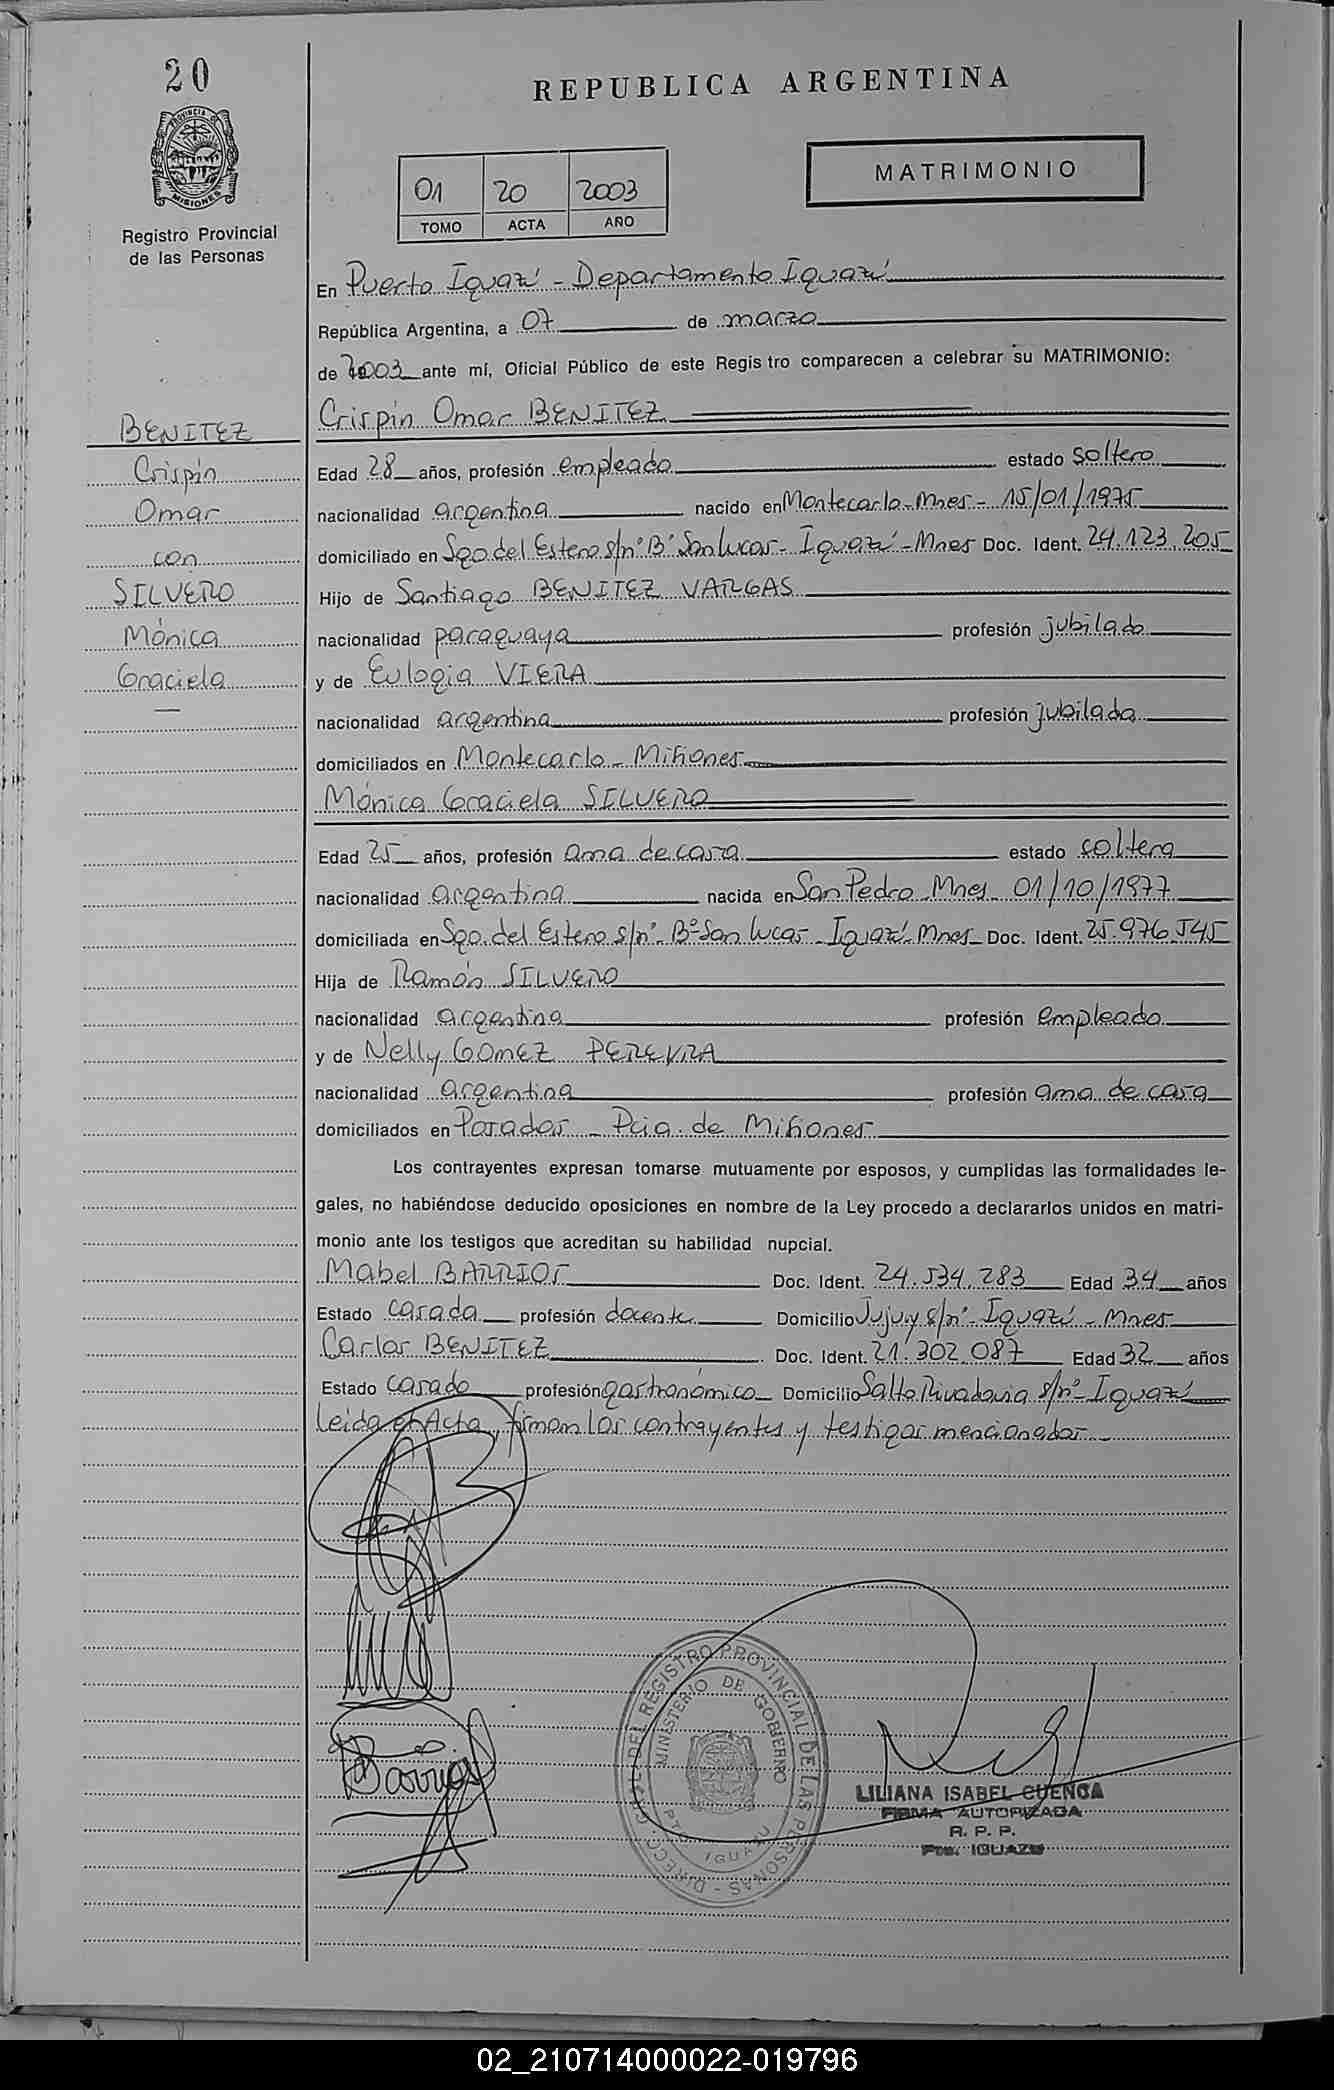 20
REPUBLICA ARGENTINA
PROVINCIA D
MISIONES
Registro Provincial
de las Personas
MATRIMONIO
01 20 2003
TOMO ACTA AÑO
En Puerto Iguazú - Departamento Iguazú
República Argentina, a 07 de marzo
de 2003 ante mí, Oficial Público de este Regis tro comparecen a celebrar su MATRIMONIO:
BENITEZ
Crispín
Omar
con
SILVERO
Mónica
Graciela
Crispín Omar BENITEZ
Edad 28 años, profesión empleado estado soltero
nacionalidad argentina nacido en Montecarlo - Mnes - 15/01/1975
domiciliado en Sgo. del Estero s/nº Bº San Lucas - Iguazú - Mnes Doc. Ident. 24.123.205
Hijo de Santiago BENITEZ VARGAS
nacionalidad paraguaya profesión jubilado
y de Eulogia VIERA
nacionalidad argentina profesión jubilada
domiciliados en Montecarlo - Misiones
Mónica Graciela SILVERO
Edad 25 años, profesión ama de casa estado soltera
nacionalidad argentina nacida en San Pedro - Mnes - 01/10/1977
domiciliada en Sgo. del Estero s/nº - Bº San Lucas - Iguazú - Mnes - Doc. Ident. 25.976.545
Hija de Ramón SILVERO
nacionalidad argentina profesión empleado
y de Nelly GOMEZ PEREYRA
nacionalidad argentina profesión ama de casa
domiciliados en Posadas - Pcia. de Misiones
Los contrayentes expresan tomarse mutuamente por esposos, y cumplidas las formalidades le-
gales, no habiéndose deducido oposiciones en nombre de la Ley procedo a declararlos unidos en matri-
monio ante los testigos que acreditan su habilidad nupcial.
Mabel BARRIOS Doc. Ident. 24.534.283 Edad 34 años
Estado casada profesión docente Domicilio Jujuy s/nº - Iguazú - Mnes
Carlos BENITEZ Doc. Ident. 21.302.087 Edad 32 años
Estado casado profesión gastronómico Domicilio Salto Rivadavia s/nº - Iguazú
Leída el Acta, firman los contrayentes y testigos mencionados
DIRECC. GRAL. DEL REGISTRO PROVINCIAL DE LAS PERSONAS
MINISTERIO DE GOBIERNO
PTO. IGUAZU
LILIANA ISABEL CUENCA
FIRMA AUTORIZADA
R. P. P.
Pto. IGUAZU
02_210714000022-019796